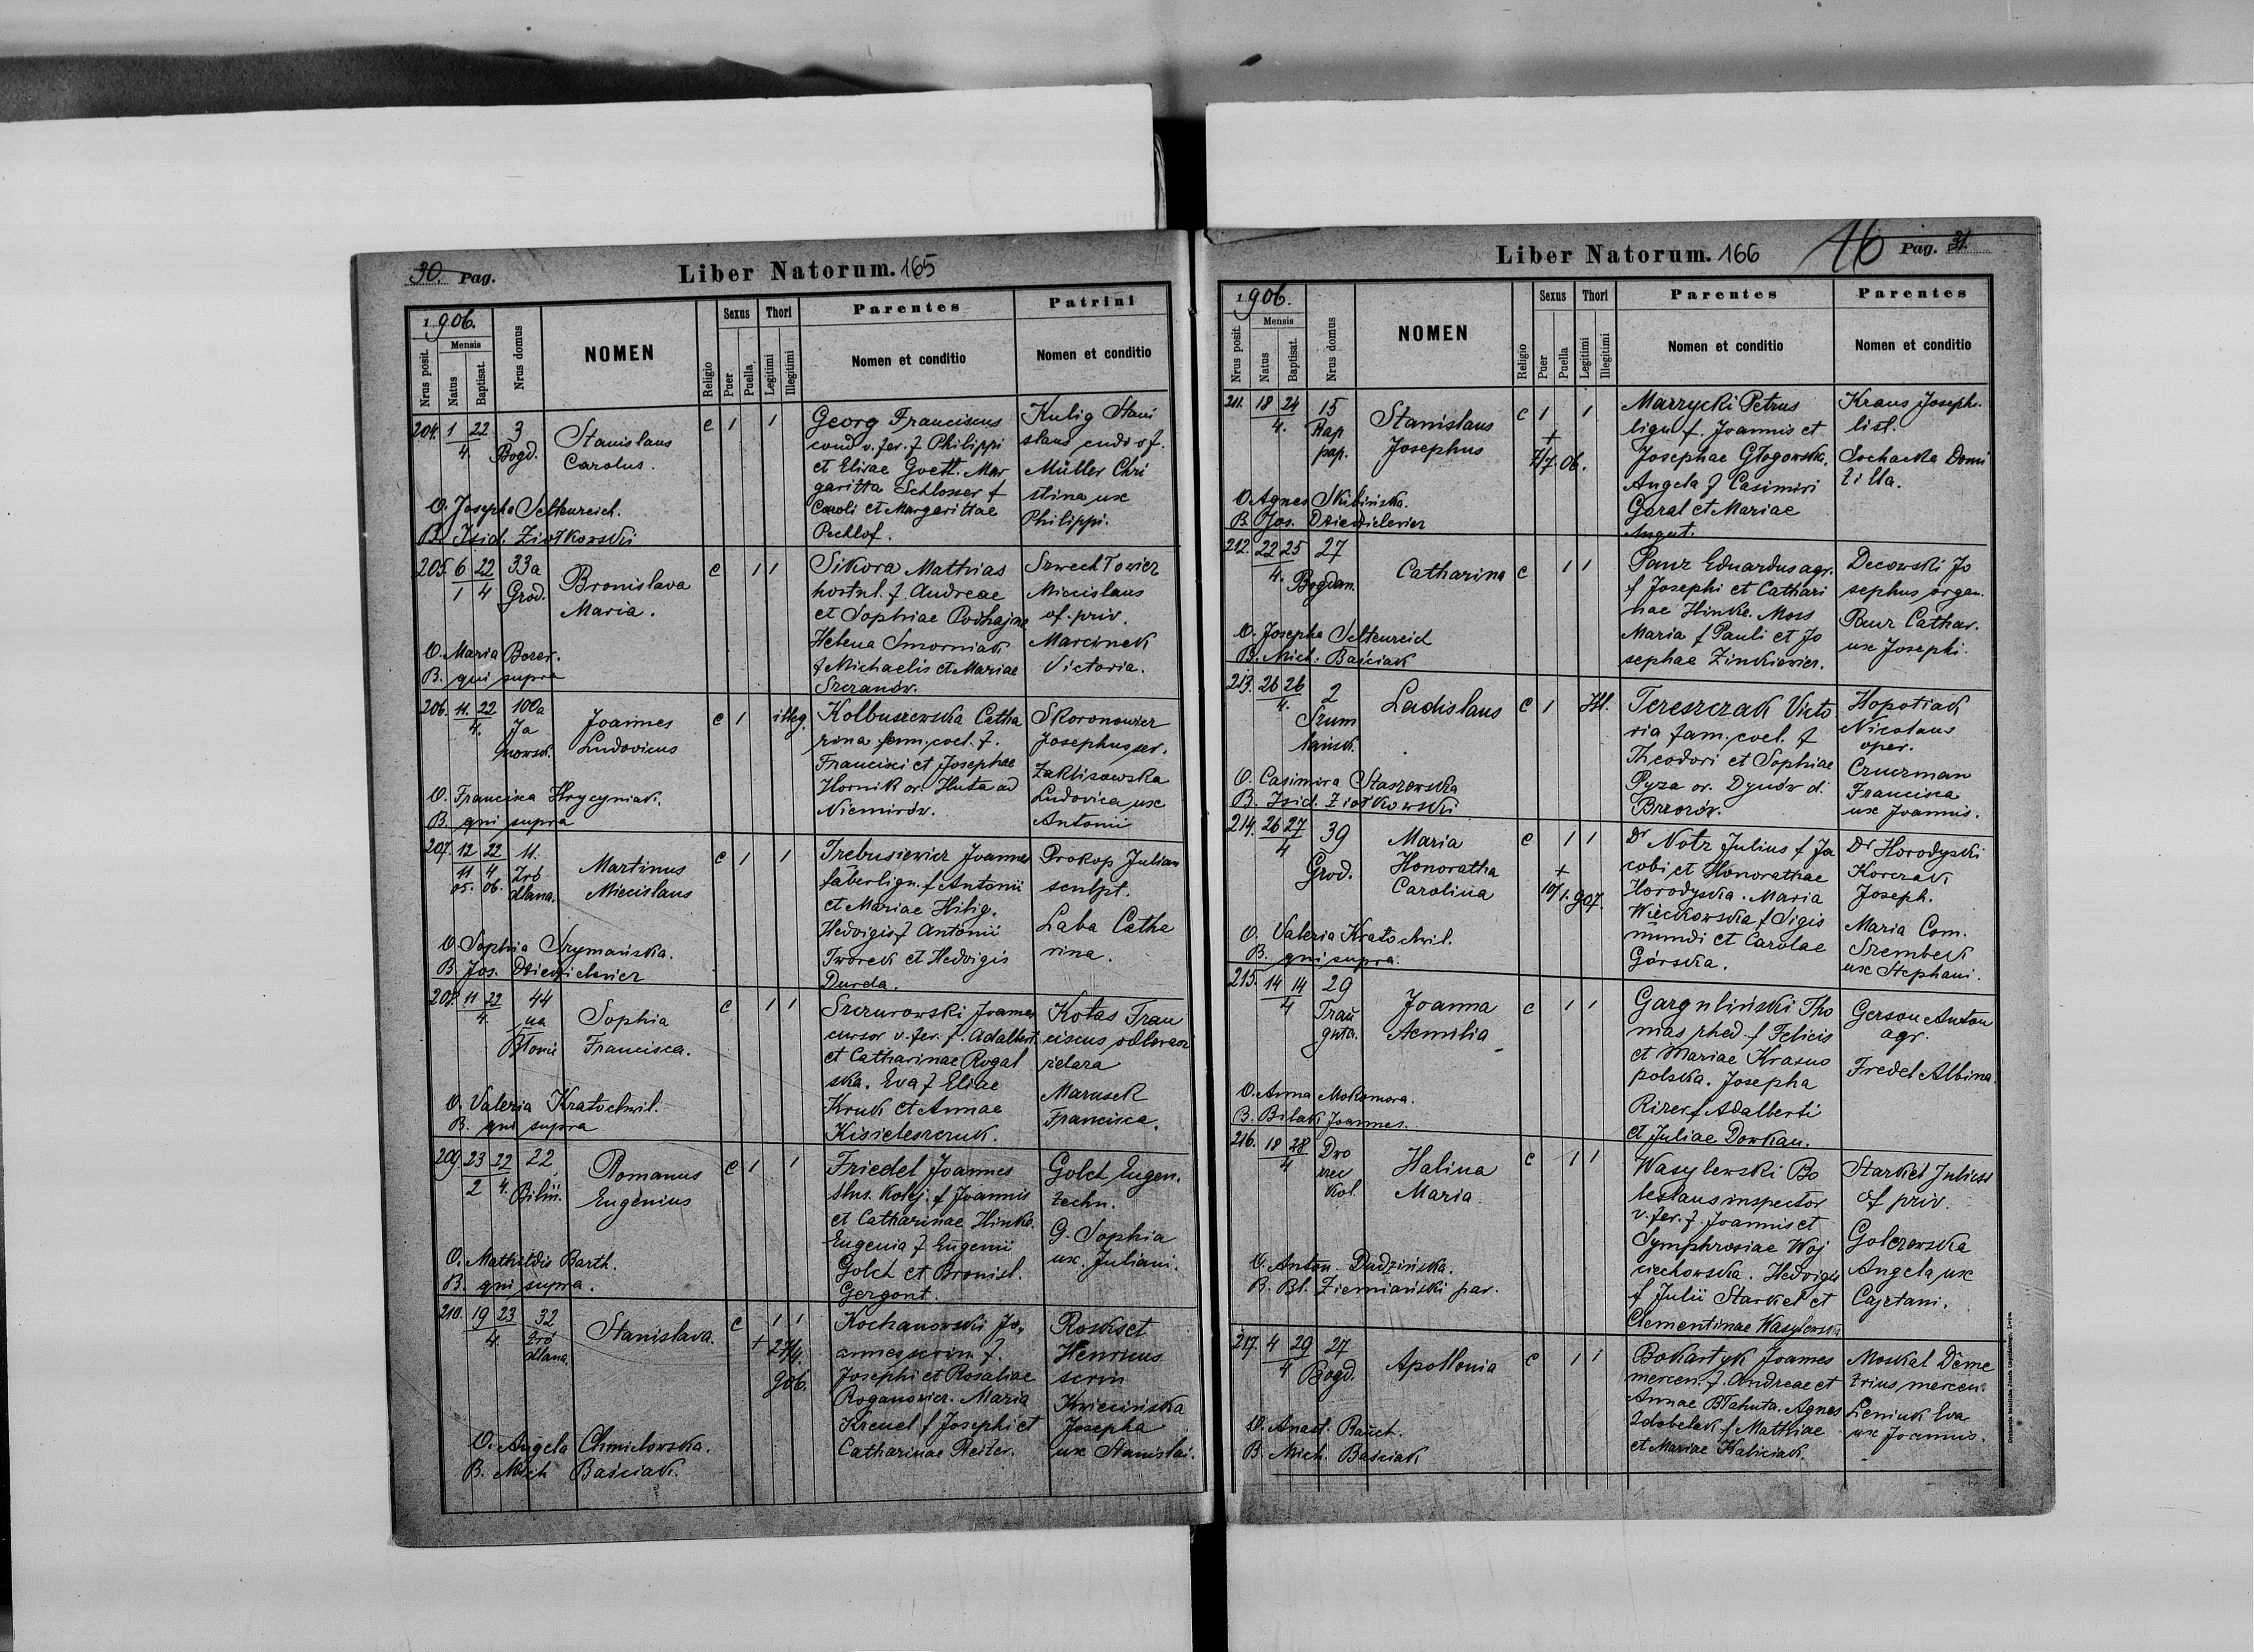 30. Pag.
Liber Natorum. 165
1906.
Nrus posit.
Mensis
Natus
Baptisat.
Nrus domus
NOMEN
Religio
Sexus
Puer
Puella
Thori
Legitimi
Illegitimi
Parentes
Nomen et conditio
Patrini
Nomen et conditio
204. 1/4. 22 3 Bogd.
Stanislaus
Carolus.
c 1 1
Georg Franciscus
cond v. fer. f Philippi
et Elisae Goett. Mar
garitta Schlosser f
Caroli et Margarittae
Pechlof.
Kulig Stani
slaus cuds f.
Müller Chri
stina ux
Philippi.
O. Josepha Seltenreich.
B. Isid. Ziołkowski
205. 6/1 22/4 33a Grod.
Bronislava
Maria.
c 1 1
Sikora Mathias
hortul. f. Andreae
et Sophiae Podhajna
Helena Smorniak
f Michaelis et Mariae
Szczanów.
Szwech Towicz
Miecislaus
of. priv.
Marcinek
Victoria.
O. Maria Borer.
B. qui supra
206. 11. 22/4. 100a Ja
nowsk.
Joannes
Ludovicus
c 1 illeg.
Kolbuszewska Catha
rina fam. coel. f.
Francisci et Josephae
Hornik or. Huta ad
Niemirów.
Skoronowicz
Josephus ser.
Zaklisowska
Ludovica ux
Antonii
O. Francisca Hrycyniak.
B. qui supra
207. 12/11 05. 22/4 06. 11.
Zró
dlana.
Martinus
Miecislaus
c 1 1
Trebusiewicz Joannes
faber lign. f Antonii
et Mariae Hilig.
Hedvigis f Antonii
Tworek et Hedvigis
Durda.
Prokop Julian
sculpt.
Laba Catha
rina.
O. Sophia Szymańska.
B. Jos. Dziedzielewicz
208. 11 22/4. 44
na
Błonie
Sophia
Francisca.
c 1 1
Szczurowski Joannes
cursor v. fer. f. Adalbert
et Catharinae Rogal
ska. Eva f Eliae
Kruk et Annae
Kisieleszczuk.
Kotas Fran
ciscus odlewacz
żelaza
Marusek
Francisca.
O. Valeria Kratochwil.
B. qui supra
209. 23/2 22/4. 22
Bilin.
Romanus
Eugenius
c 1 1
Friedel Joannes
slus. kolej. f Joannis
et Catharinae Hinke.
Eugenia f Eugenii
Golch et Bronisl.
Gergont.
Golch Eugen.
techn.
G. Sophia
ux. Juliani.
O. Mathildis Barth.
B. qui supra.
210. 19 23/4. 32
Zró
dlana.
Stanislava.
c 1 1
+ 27/4.
906.
Kochanowski Jo,
annes scrin. f.
Josephi et Rosaliae
Roganowicz. Maria
Kreuel f Josephi et
Catharinae Reiter.
Roskset
Henricus
scrin
Kwiecińska
Josepha
ux Stanislai.
O. Angela Chmielowska.
B. Mich Baściak.
Liber Natorum. 166
16
Pag. 31.
1906.
Nrus posit.
Mensis
Natus
Baptisat.
Nrus domus
NOMEN
Religio
Sexus
Puer
Puella
Thori
Legitimi
Illegitimi
Parentes
Nomen et conditio
Parentes
Nomen et conditio
211. 18 24/4. 15
Kap
pap.
Stanislaus
Josephus
c 1 1
+
7/7. 06.
Marzycki Petrus
lign f. Joannis et
Josephae Głogowska.
Angela f Casimiri
Goral et Mariae
August.
Kraus Joseph.
list.
Lochacka Domi
tilla.
O. Agnes Skibińska.
B. Jos. Dziedzielewicz
212. 22 25/4. 27
Bogdan.
Catharina c 1 1
Paur Eduardus agr.
f Josephi et Cathari
nae Hinke. Moss
Maria f Pauli et Jo
sephae Zinkiewicz.
Decowski Jo
sephus organ.
Paur Cathar.
ux Josephi.
O. Josepha Seltenreich
B. Mich. Baściak
213. 26 26/4. 2
Szum
lańsk.
Ladislaus c 1 Ill.
Tereszczak Victo
ria fam. coel. f
Theodori et Sophiae
Pyza or. Dynów d.
Brzozów.
Hopotiak
Nicolaus
oper.
Czuczman
Francisca
ux Joannis.
O. Casimira Staszewska
B. Isid. Ziołkowski
214. 26 27/4 39
Grod.
Maria
Honoratha
Carolina
c 1 1
+
10/1. 907.
Dr Notz Julius f Ja
cobi et Honorathae
Horodyska. Maria
Więckowska f Sigis
mundi et Carolae
Górska.
Dr Horodyski
Korczak
Joseph.
Maria Com.
Szembek
ux Stephani.
O. Valeria Kratochwil.
B. qui supra.
215. 14 14/4 29
Trau
guta.
Joanna
Aemilia
c 1 1
Gargulinski Tho
mas rhed. f Felicis
et Mariae Krasno
polska. Josepha
Rizer f Adalberti
et Juliae Dowkan.
Gerson Anton
agr.
Fredel Albina
O. Anna Mokomora.
B. Bilak Joannes.
216. 18 28/4 Dwo
rzec
kol.
Halina
Maria.
c 1 1
Wasylewski Bo
leslaus inspector
v. fer. f. Joannis et
Symphrosiae Woj
ciechowska. Hedvigis
f Julii Starkel et
Clementinae Wasylewska
Starkel Julius
of priv.
Golczewska
Angela ux
Cajetani.
O. Anton. Dudzińska.
B. Bl. Ziemiański par.
217. 4 29/4 27
Bogd.
Apollonia c 1 1
Bokastyk Joannes
mercen. f. Andreae et
Annae Błahuta. Agnes
Zdobelak f Matthiae
et Mariae Kaliciak.
Moskal Deme
trius mercen.
Leniuk Eva
ux Joannis.
O. Anast. Rauch.
B. Mich. Baściak